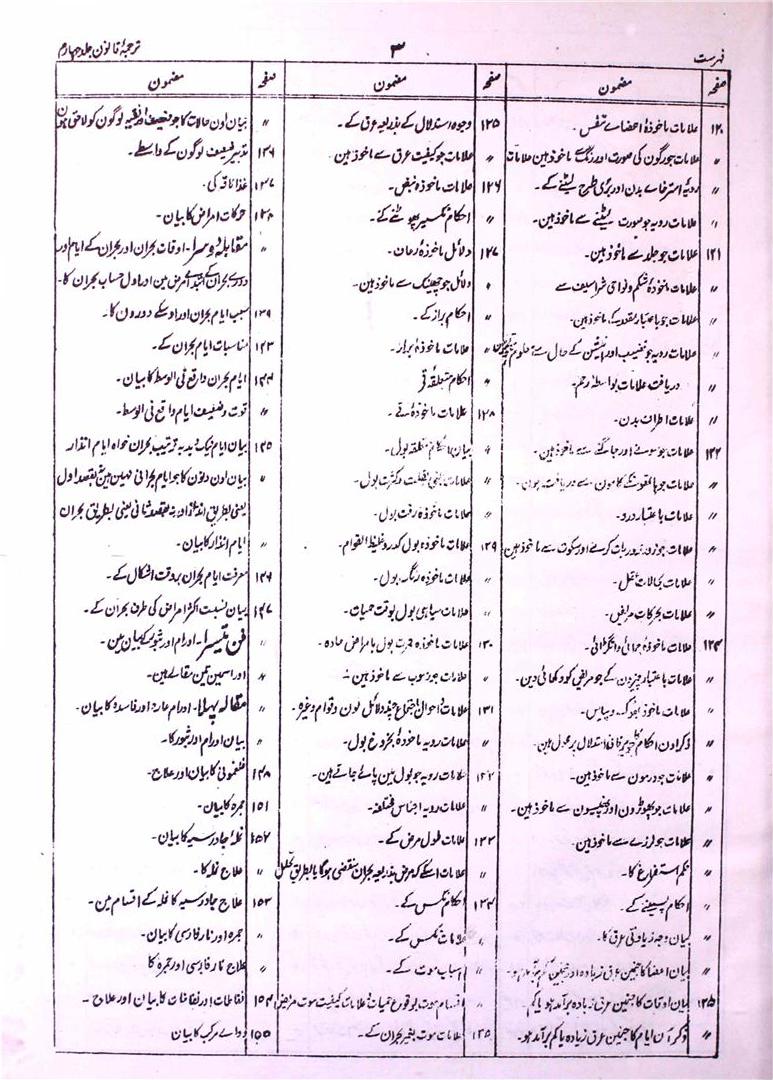 فہرست
۳
ترجمۂ قانون جلد چہارم
صفحہ مضمون
۱۲۰ علامات ماخوذۂ اعضاے تنفس۔
〃 علامات جو رگون کی صورت اور رنگ سے ماخوذ ہین علامات
〃 ردیۂ استرخاے بدن اور بری طرح لیٹنے کے۔
〃 علامات ردیہ جو صورت لیٹنے سے ماخوذ ہین۔
۱۲۱ علامات جو جلد سے ماخوذ ہین۔
〃 علامات ماخوذۂ شکم و نواحی شراسیف سے
〃 علامات جو باعتبار مقعد کے ماخوذ ہین۔
〃 علامات ردیہ جو قضیب اور انثیین کے حال سے معلوم
〃 دریافت علامات بواسطۂ رحم۔
〃 علامات اطراف بدن۔
۱۲۲ علامات جو سونے اور جاگنے سے ماخوذ ہین۔
〃 علامات جو ہاتھ کے کامون سے دریافت ہون۔
〃 علامات باعتبار درد۔
〃 علامات جو زور زور بات کرنے اور سکوت سے ماخوذ ہین
〃 علامات بحالات عقل۔
〃 علامات بحرکات مریض۔
۱۲۳ علامات ماخوذۂ جمائی و انگڑائی۔
〃 علامات باعتبار چیزون کے جو مریض کو دکھائی دین۔
〃 علامات ماخوذ بھوک و پیاس۔
〃 ذکر اون احکام کا جو استدلال پر محمول ہین۔
〃 علامات جو ورمون سے ماخوذ ہین۔
〃 علامات جو پھوڑون اور پھنسیون سے ماخوذ ہین۔
〃 علامات جو لرزے سے ماخوذ ہین۔
〃 حکم استفراغ کا۔
〃 احکام پسینے کے۔
〃 بیان وجہ زیادتی عرق کا۔
〃 بیان اعضا کا جنمین عرق زیادہ اور جنمین کم برآمد ہو۔
۱۲۵ بیان اوقات کا جنمین عرق زیادہ برآمد ہو یا کم
〃 ذکر اُن ایام کا جنمین عرق زیادہ یا کم برآمد ہو۔
صفحہ مضمون
۱۲۵ وجوہ استدلال کے بذریعہ عرق کے۔
〃 علامات جو کیفیت عرق سے ماخوذ ہین
۱۲۶ علامات ماخوذہ نبض۔
〃 احکام نکسیر پھوٹنے کے۔
۱۲۷ دلائل ماخوذۂ رعاف۔
〃 دلائل جو چھینک سے ماخوذ ہین۔
〃 احکام براز کے۔
〃 علامات ماخوذۂ براز۔
〃 احکام متعلقہ قے
۱۲۸ علامات ماخوذۂ قے۔
〃 بیان احکام متعلقہ بول۔
〃 علامات قلت و کثرت بول۔
〃 علامات ماخوذہ رقت بول۔
۱۲۹ علامات ماخوذہ بول کدر و غلیظ القوام۔
〃 علامات ماخوذہ رنگ بول۔
〃 علامات سیاہی بول بوقت حمیات۔
۱۳۰ علامات ماخوذہ حمرت بول بامراض حادہ۔
〃 علامات جو رسوب سے ماخوذ ہین۔
۱۳۱ علامات احوال اجتماع چند دلائل لون و قوام وغیرہ۔
〃 علامات ردیہ ماخوذۂ بخروج بول۔
۱۳۲ علامات ردیہ جو بول مین پائے جاتے ہین۔
〃 علامات ردیہ اجناس مختلفہ۔
۱۳۳ علامات طول مرض کے۔
〃 علامات اسکے کہ مرض بذریعہ بحران منقضی ہوگا یا بطریق تحلل
۱۳۴ احکام نکس کے۔
〃 علامات نکس کے۔
〃 اسباب موت کے۔
〃 اقسام موت بوقوع حمیات و علامات کیفیت موت مریض
۱۳۵ علامات موت بغیر بحران کے۔
صفحہ مضمون
〃 بیان اون حالات کا جو ضعیف لوگون کو لاحق ہون
۱۳۶ تدبیر ضعیف لوگون کے واسطے۔
۱۳۷ غذا ناقہ کی۔
۱۳۸ حرکات امراض کا بیان۔
〃 مقالۂ دوسرا۔ اوقات بحران اور بحران کے ایام اور
دورے بحران کے ابتداے مرض مین اور اول حساب بحران کا۔
۱۳۹ سبب ایام بحران اور اوسکے دورون کا۔
۱۴۳ مناسبات ایام بحران کے۔
۱۴۴ ایام بحران واقع فی الوسط کا بیان۔
〃 قوت و ضعیف ایام واقع فی الوسط۔
۱۴۵ بیان ایام نیک و بد بہ ترتیب بحران خواہ ایام انذار
〃 بیان اون دنون کا جو ایام بحرانی نہین ہین بقصد اول
یعنی بطریق انذار اور نہ بقصد ثانی یعنی بطریق بحران
〃 ایام انذار کا بیان۔
۱۴۶ معرفت ایام بحران بوقت اشکال کے۔
۱۴۷ بیان نسبت اکثر امراض کی طرف بحران کے۔
〃 فن تیسرا۔ اورام اور بثور کے بیان مین۔
〃 اور اسمین تین مقالے ہین۔
〃 مقالہ پہلا۔ اورام حارہ اور فاسدہ کا بیان۔
〃 بیان اورام اور بثور کا۔
۱۴۸ فلغمونی کا بیان اور علاج۔
۱۵۱ حمرہ کا بیان۔
۱۵۲ نملۂ جاورسیہ کا بیان۔
〃 علاج نملہ کا۔
۱۵۳ علاج جاورسیہ کا نملہ کے اقسام مین۔
〃 جمرہ اور نار فارسی کا بیان۔
〃 علاج نار فارسی اور جمرہ کا
۱۵۴ نفاطات اور نفاخات کا بیان اور علاج۔
۱۵۵ دوائے مرکب کا بیان